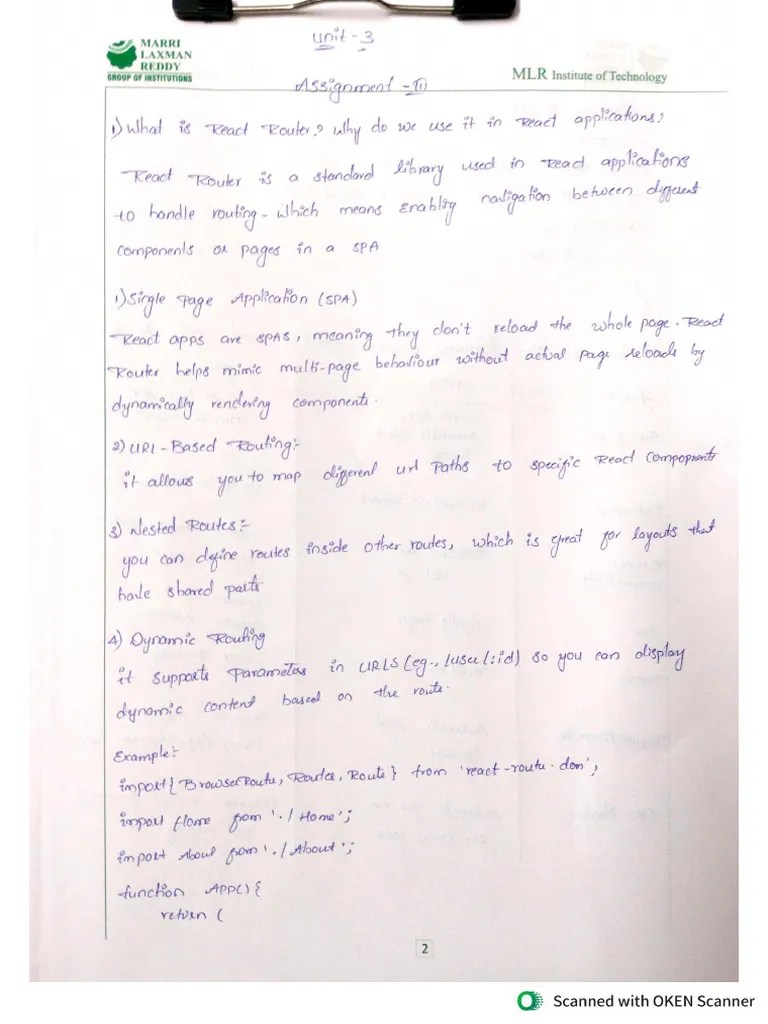 Unit - 3
MARRI
LAXMAN
REDDY
GROUP OF INSTITUTIONS
MLR Institute of Technology
Assignment - III
1) What is React Router? Why do we use it in React applications?
React Router is a standard library used in React applications
to handle routing - which means enabling navigation between different
components or pages in a SPA
1) Single Page Application (SPA)
React apps are SPAs, meaning they don't reload the whole page. React
Router helps mimic multi-page behaviour without actual page reloads by
dynamically rendering components.
2) URL - Based Routing:-
it allows you to map different url paths to specific React Components
3) Nested Routes:-
you can define routes inside other routes, which is great for layouts that
have shared parts
4) Dynamic Routing
it supports Parameters in URLS (eg., /user/:id) so you can display
dynamic content based on the route.
Example:-
import { BrowserRoute, Route, Route } from 'react-route-dom';
import Home from './Home';
import About from './About';
function APP() {
return (
2
Scanned with OKEN Scanner